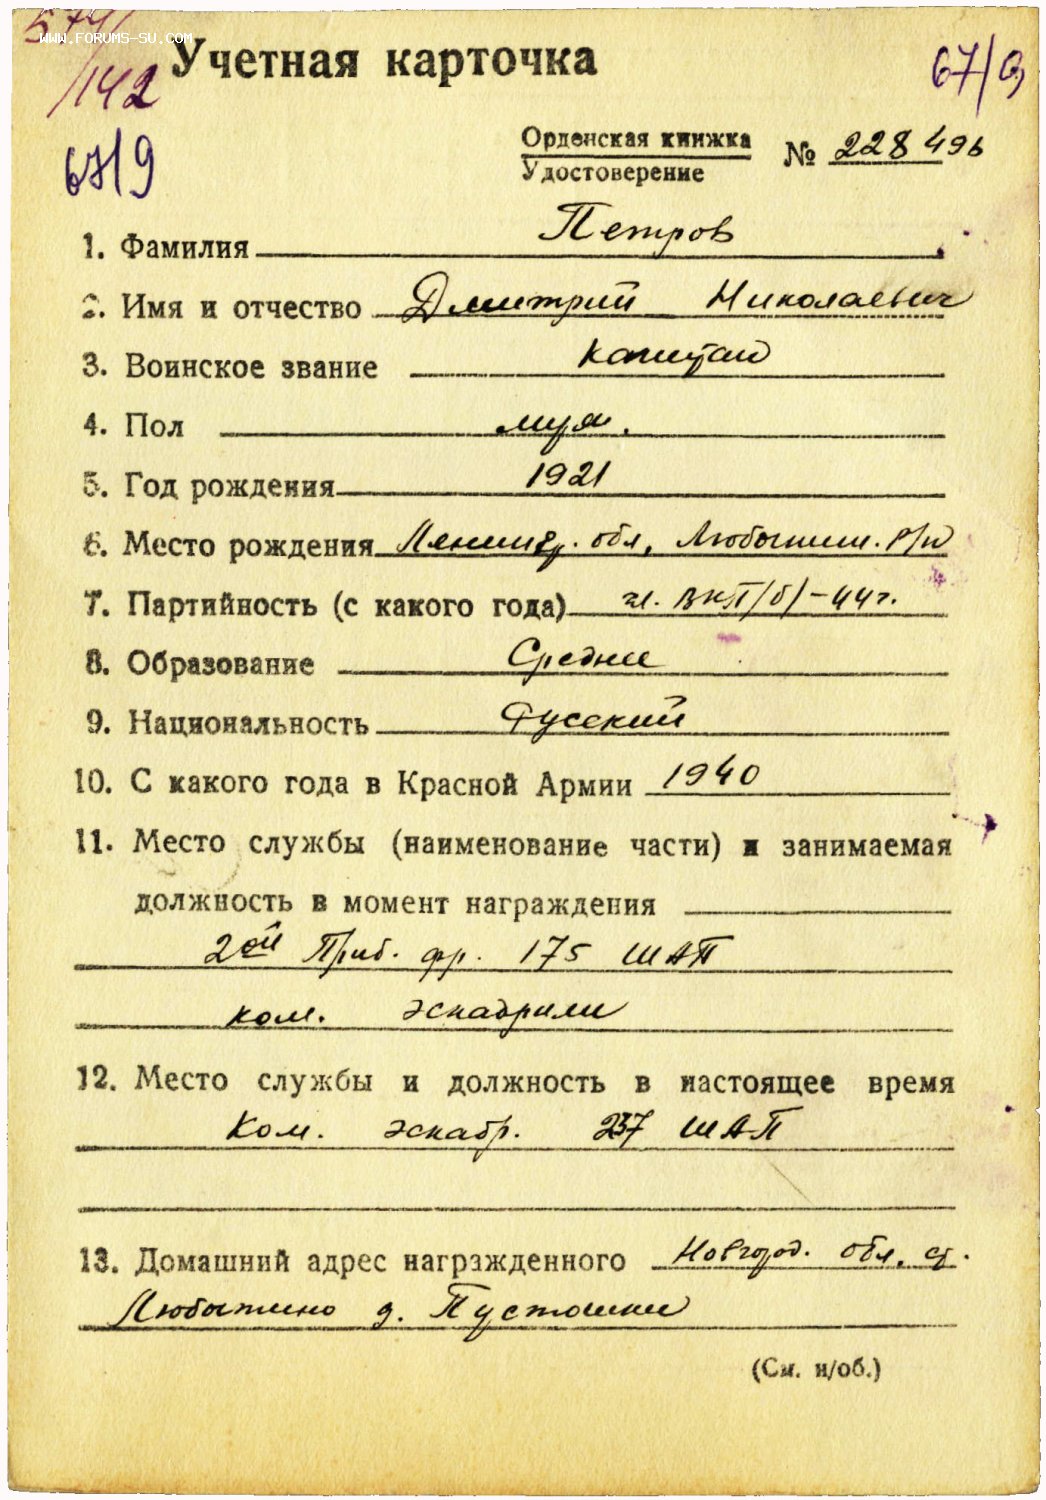 574/
WWW.FORUMS-SU.COM
/142
Учетная карточка
67/9
67/9
Орденская книжка
Удостоверение
№ 228496
1. Фамилия Петров
2. Имя и отчество Дмитрий Николаевич
3. Воинское звание капитан
4. Пол муж.
5. Год рождения 1921
6. Место рождения Ленингр. обл, Любытин. р/н
7. Партийность (с какого года) чл. ВКП/б/-44г.
8. Образование Среднее
9. Национальность Русский
10. С какого года в Красной Армии 1940
11. Место службы (наименование части) и занимаемая
должность в момент награждения
2ой Приб. фр. 175 ШАП
ком. эскадрили
12. Место службы и должность в настоящее время
Ком. эскадр. 237 ШАП
13. Домашний адрес награжденного Новгород. обл. ст.
Любытино д. Пустошки
(См. н/об.)